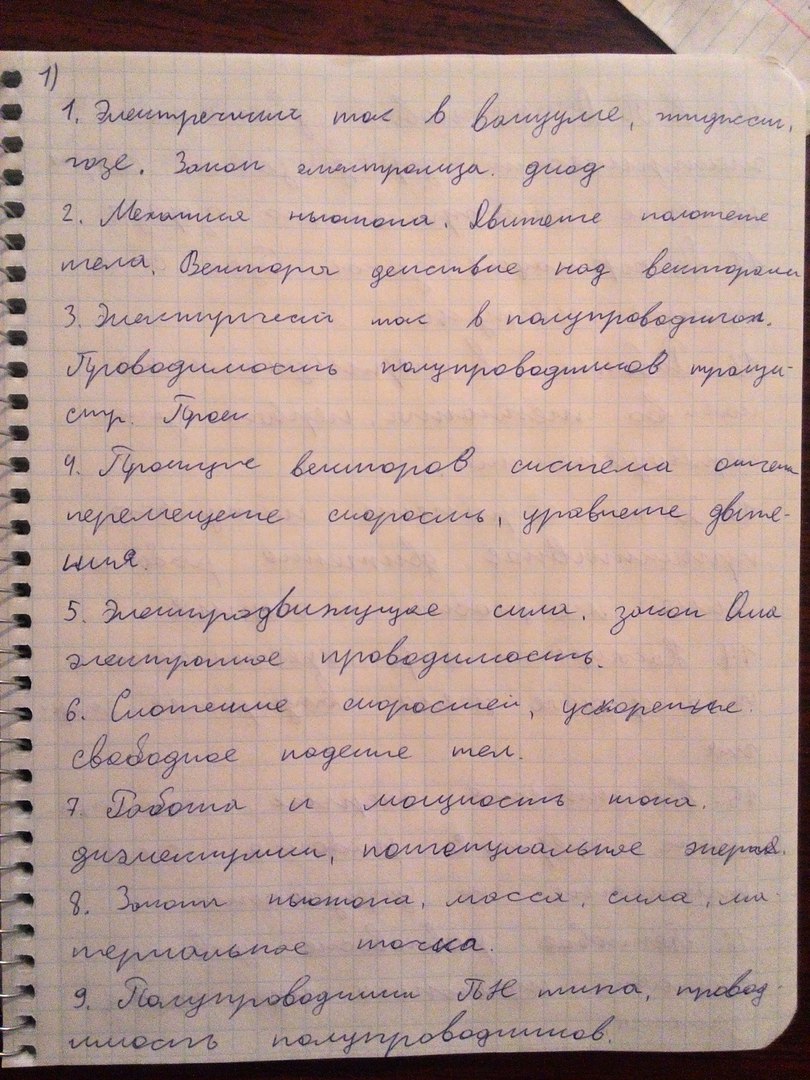 1)
1. Электречиский ток в вакууме, жидкости,
газе. Закон електролиза. диод
2. Механика ньютона. Движение положение
тела. Векторы действие над векторами
3. Электрический ток в полупроводниках.
Проводимость полупроводников транзи-
стр.
4. Проекции векторов система отчета
перемещение скорость, уравнение движе-
ния.
5. Электродвижущае сила. закон Ома
электронное проводимость.
6. Сложение скоростей, ускорение.
свободное падение тел.
7. Работа и мощность тока.
диэлектрики, потенциальное энергия.
8. Законы ньютона, масса, сила, ма-
териальное точка.
9. Полупроводники ПН типа, провод
имость полупроводников.